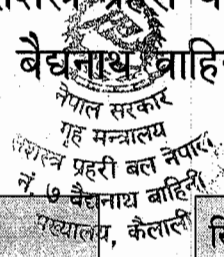 बैद्यनाथ वाहि
नेपाल सरकार
गृह मन्त्रालय
सशस्त्र प्रहरी बल नेपाल
नं. ७ बैद्यनाथ बाहिनी
मुख्यालय, कैलाली